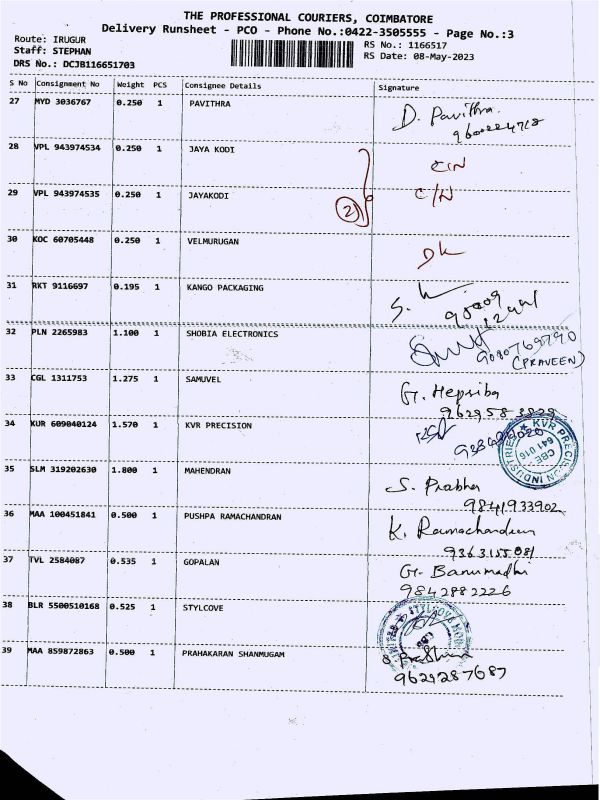 THE PROFESSIONAL COURIERS, COIMBATORE
Delivery Runsheet - PCO - Phone No.:0422-3505555 - Page No.:3
Route: IRUGUR
Staff: STEPHAN
DRS No.: DCJB116651703
RS No.: 1166517
RS Date: 08-May-2023
S No Consignment No Weight PCS Consignee Details Signature
27 MYD 3036767 0.250 1 PAVITHRA D. Pavithra
28 VPL 943974534 0.250 1 JAYA KODI
29 VPL 943974535 0.250 1 JAYAKODI C/N
2
30 KOC 60705448 0.250 1 VELMURUGAN
31 RKT 9116697 0.195 1 KANGO PACKAGING
32 PLN 2265983 1.100 1 SHOBIA ELECTRONICS
(PRAVEEN)
33 CGL 1311753 1.275 1 SAMUVEL G. Hepsiba
9629583829
34 KUR 609040124 1.570 1 KVR PRECISION
KVR PRECISION INDUSTRIES
CBE
641 016
35 SLM 319202630 1.800 1 MAHENDRAN S. Prabha
9841933902
36 MAA 100451841 0.500 1 PUSHPA RAMACHANDRAN K. Ramachandran
9363155081
37 TVL 2584087 0.535 1 GOPALAN G. Banumadhi
9842882226
38 BLR 5500510168 0.525 1 STYLCOVE
39 MAA 859872863 0.500 1 PRAHAKARAN SHANMUGAM
9629287687